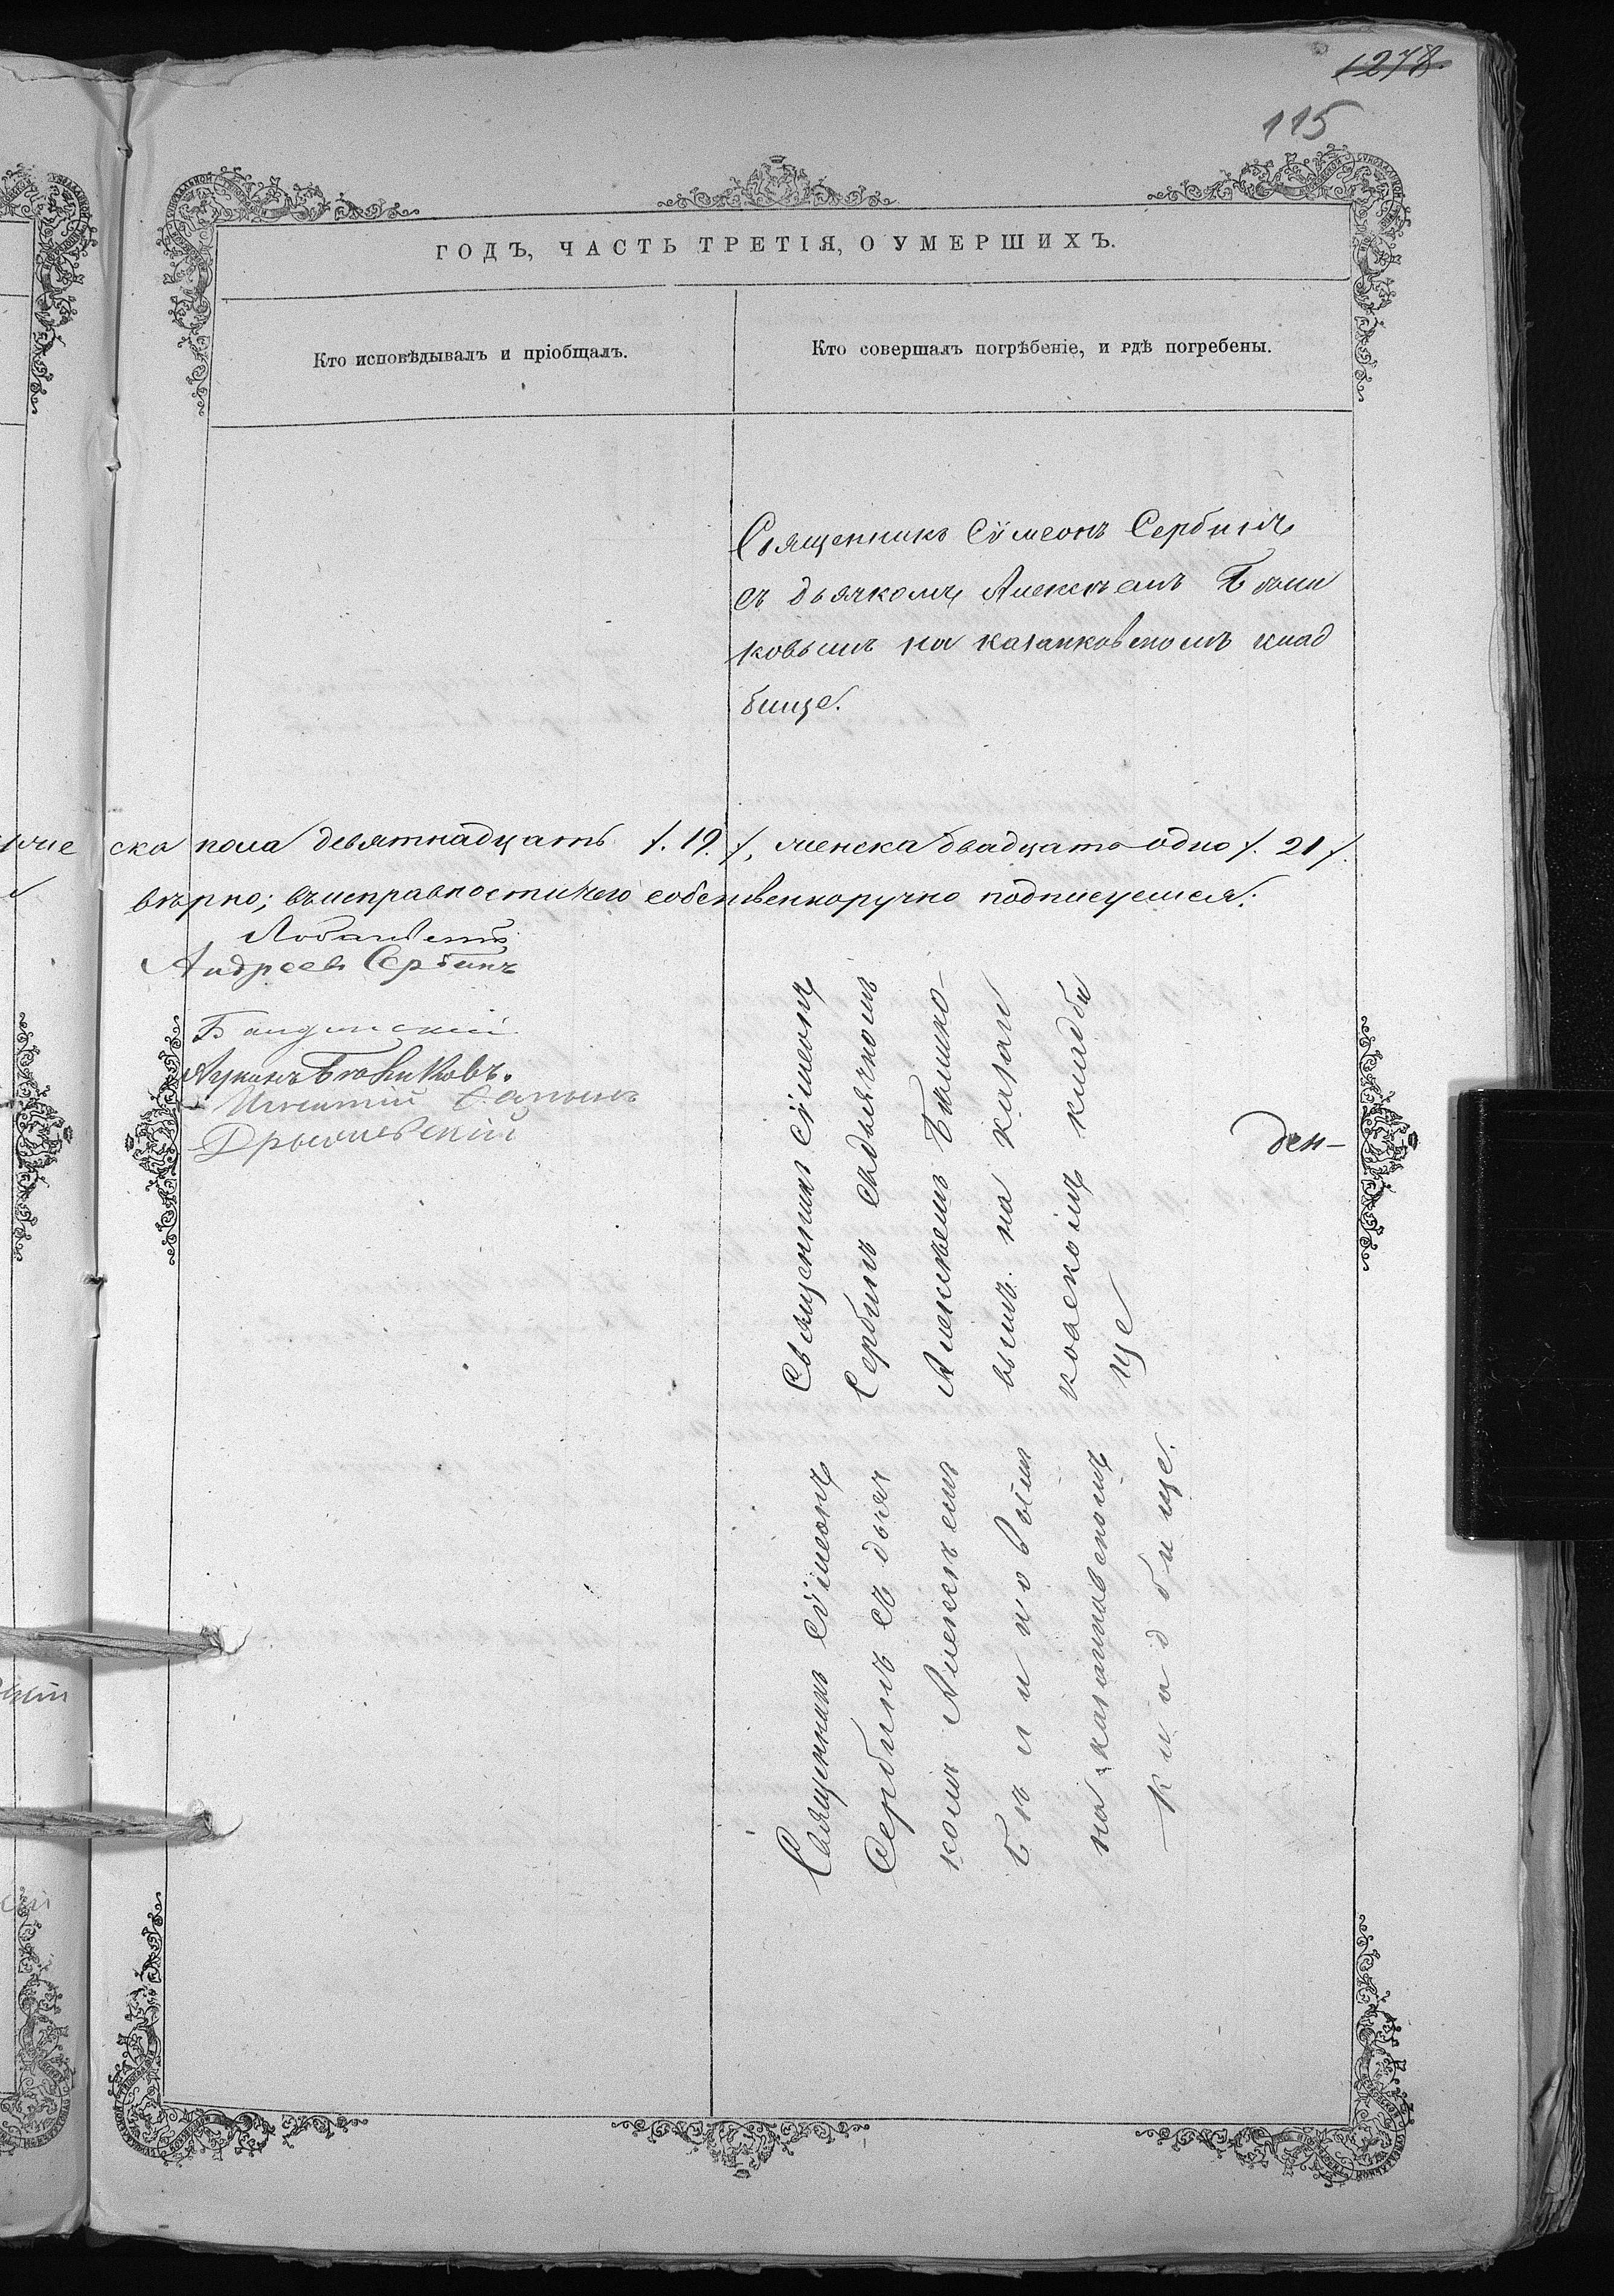 1278
115
ГОДЪ, ЧАСТЬ ТРЕТІЯ, О УМЕРШИХЪ.
Кто исповѣдывалъ и пріобщалъ.
Кто совершалъ погрѣбеніе, и гдѣ погребены.
Священникъ Сѵмеонъ Сербинъ
съ дьячкомъ Алексѣемъ Бѣли
ковымъ на казанковскомъ клад
бище.
ска пола девятнадцать /. 19. /, женска двадцать одно /. 21 /.
вѣрно; въ исправности чего собственноручно подписуемся:
Андреевъ Сербинъ
Бѣликовъ.
ден-
Священник Сѵмеонъ
Сербинъ съ дьячком
Алексѣемъ Бѣлико-
вымъ на казан
ковскомъ кладби
ще
Священникъ Сѵмеонъ
Сербинъ съ дьяч
комъ Алексѣемъ
Бѣликовым
на казанковскомъ
кладбище.